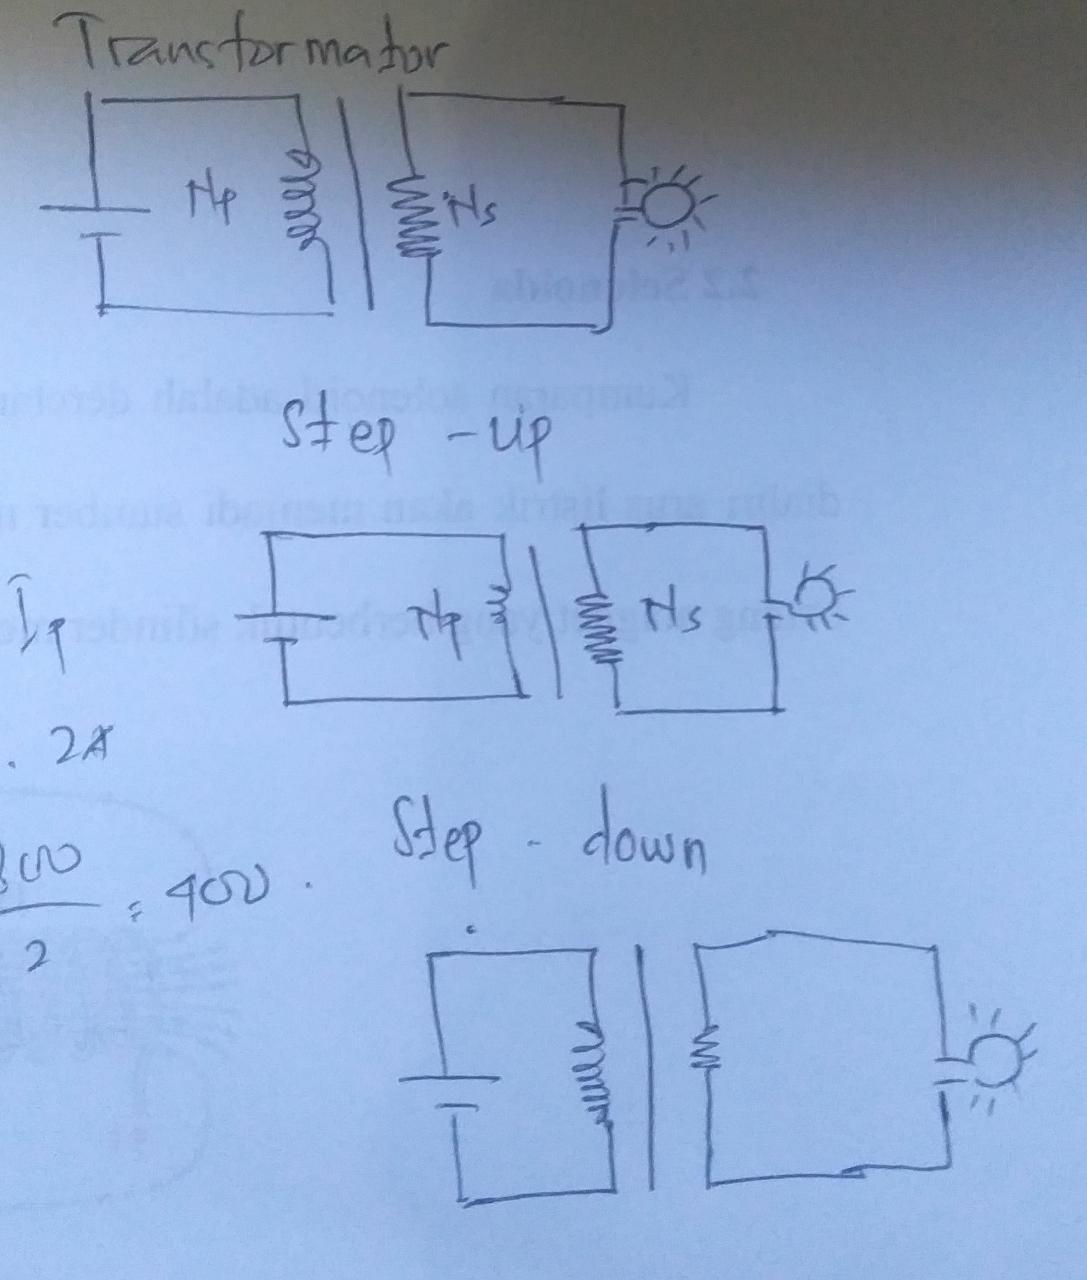 Transformator
Np Ns
Step - up
Ip
Np Ns
. 2A
Step - down
800
2
= 400 .